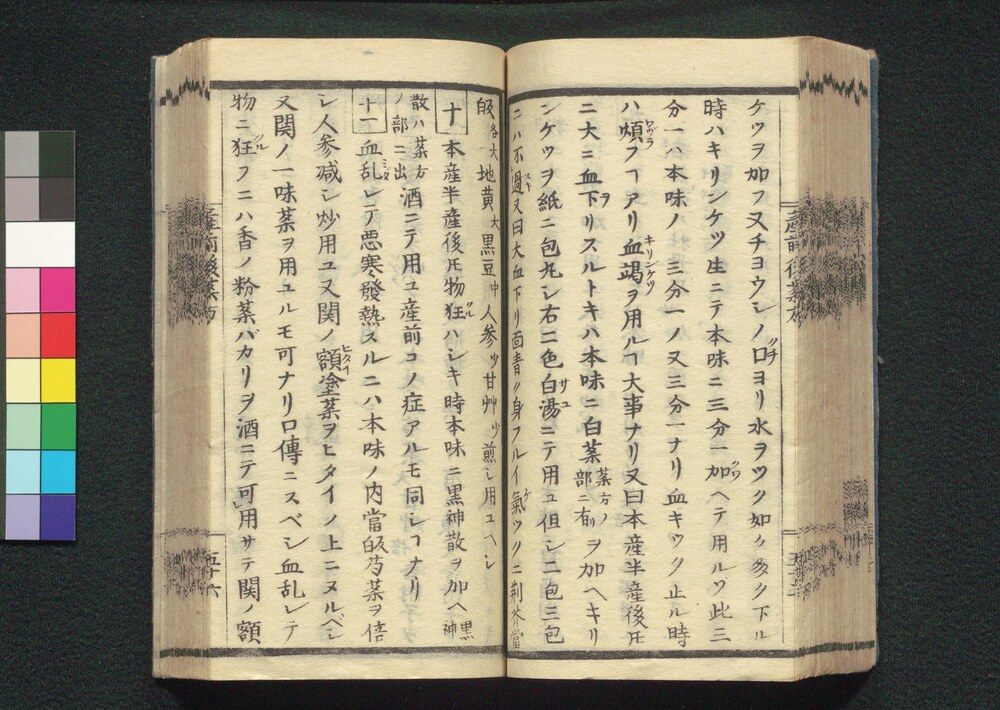 ケツヲ加フ又チヨウシノ口ヨリ水ヲツク如ク多ク下ル
時ハキリンケツ生ニテ本味ニ三分一加ヘテ用ルソ此三
分一ハ本味ノ三分一ノ又三分一ナリ血キツク止ル時
ハ煩フヿアリ血竭ヲ用ルヿ大事ナリ又曰本産半産後𪜈
ニ大ニ血下リスルトキハ本味ニ白薬薬方ノ部ニ有リヲ加ヘキリ
ンケツヲ紙ニ包丸シ右二色白湯ニテ用ユ但シ二包三包
ニハ不過又曰大血下リ面青ク身フルイ氣ツクニ荆芥當
皈各大地黄大黒豆中人参少甘艸少煎シ用ユヘシ
十 本産半産後𪜈物狂ハシキ時本味ニ黒神散ヲ加ヘ黒神
散ハ薬方ノ部ニ出酒ニテ用ユ産前コノ症アルモ同シヿナリ
十一 血乱レテ悪寒發熱スルニハ本味ノ内當皈芍薬ヲ倍
シ人参減シ炒用ユ又関ノ額塗薬ヲヒタイノ上ニヌルベシ
又関ノ一味薬ヲ用ユルモ可ナリ口傳ニスベシ血乱レテ
物ニ狂フニハ香ノ粉薬バカリヲ酒ニテ可用サテ関ノ額
産前後薬方
五十六